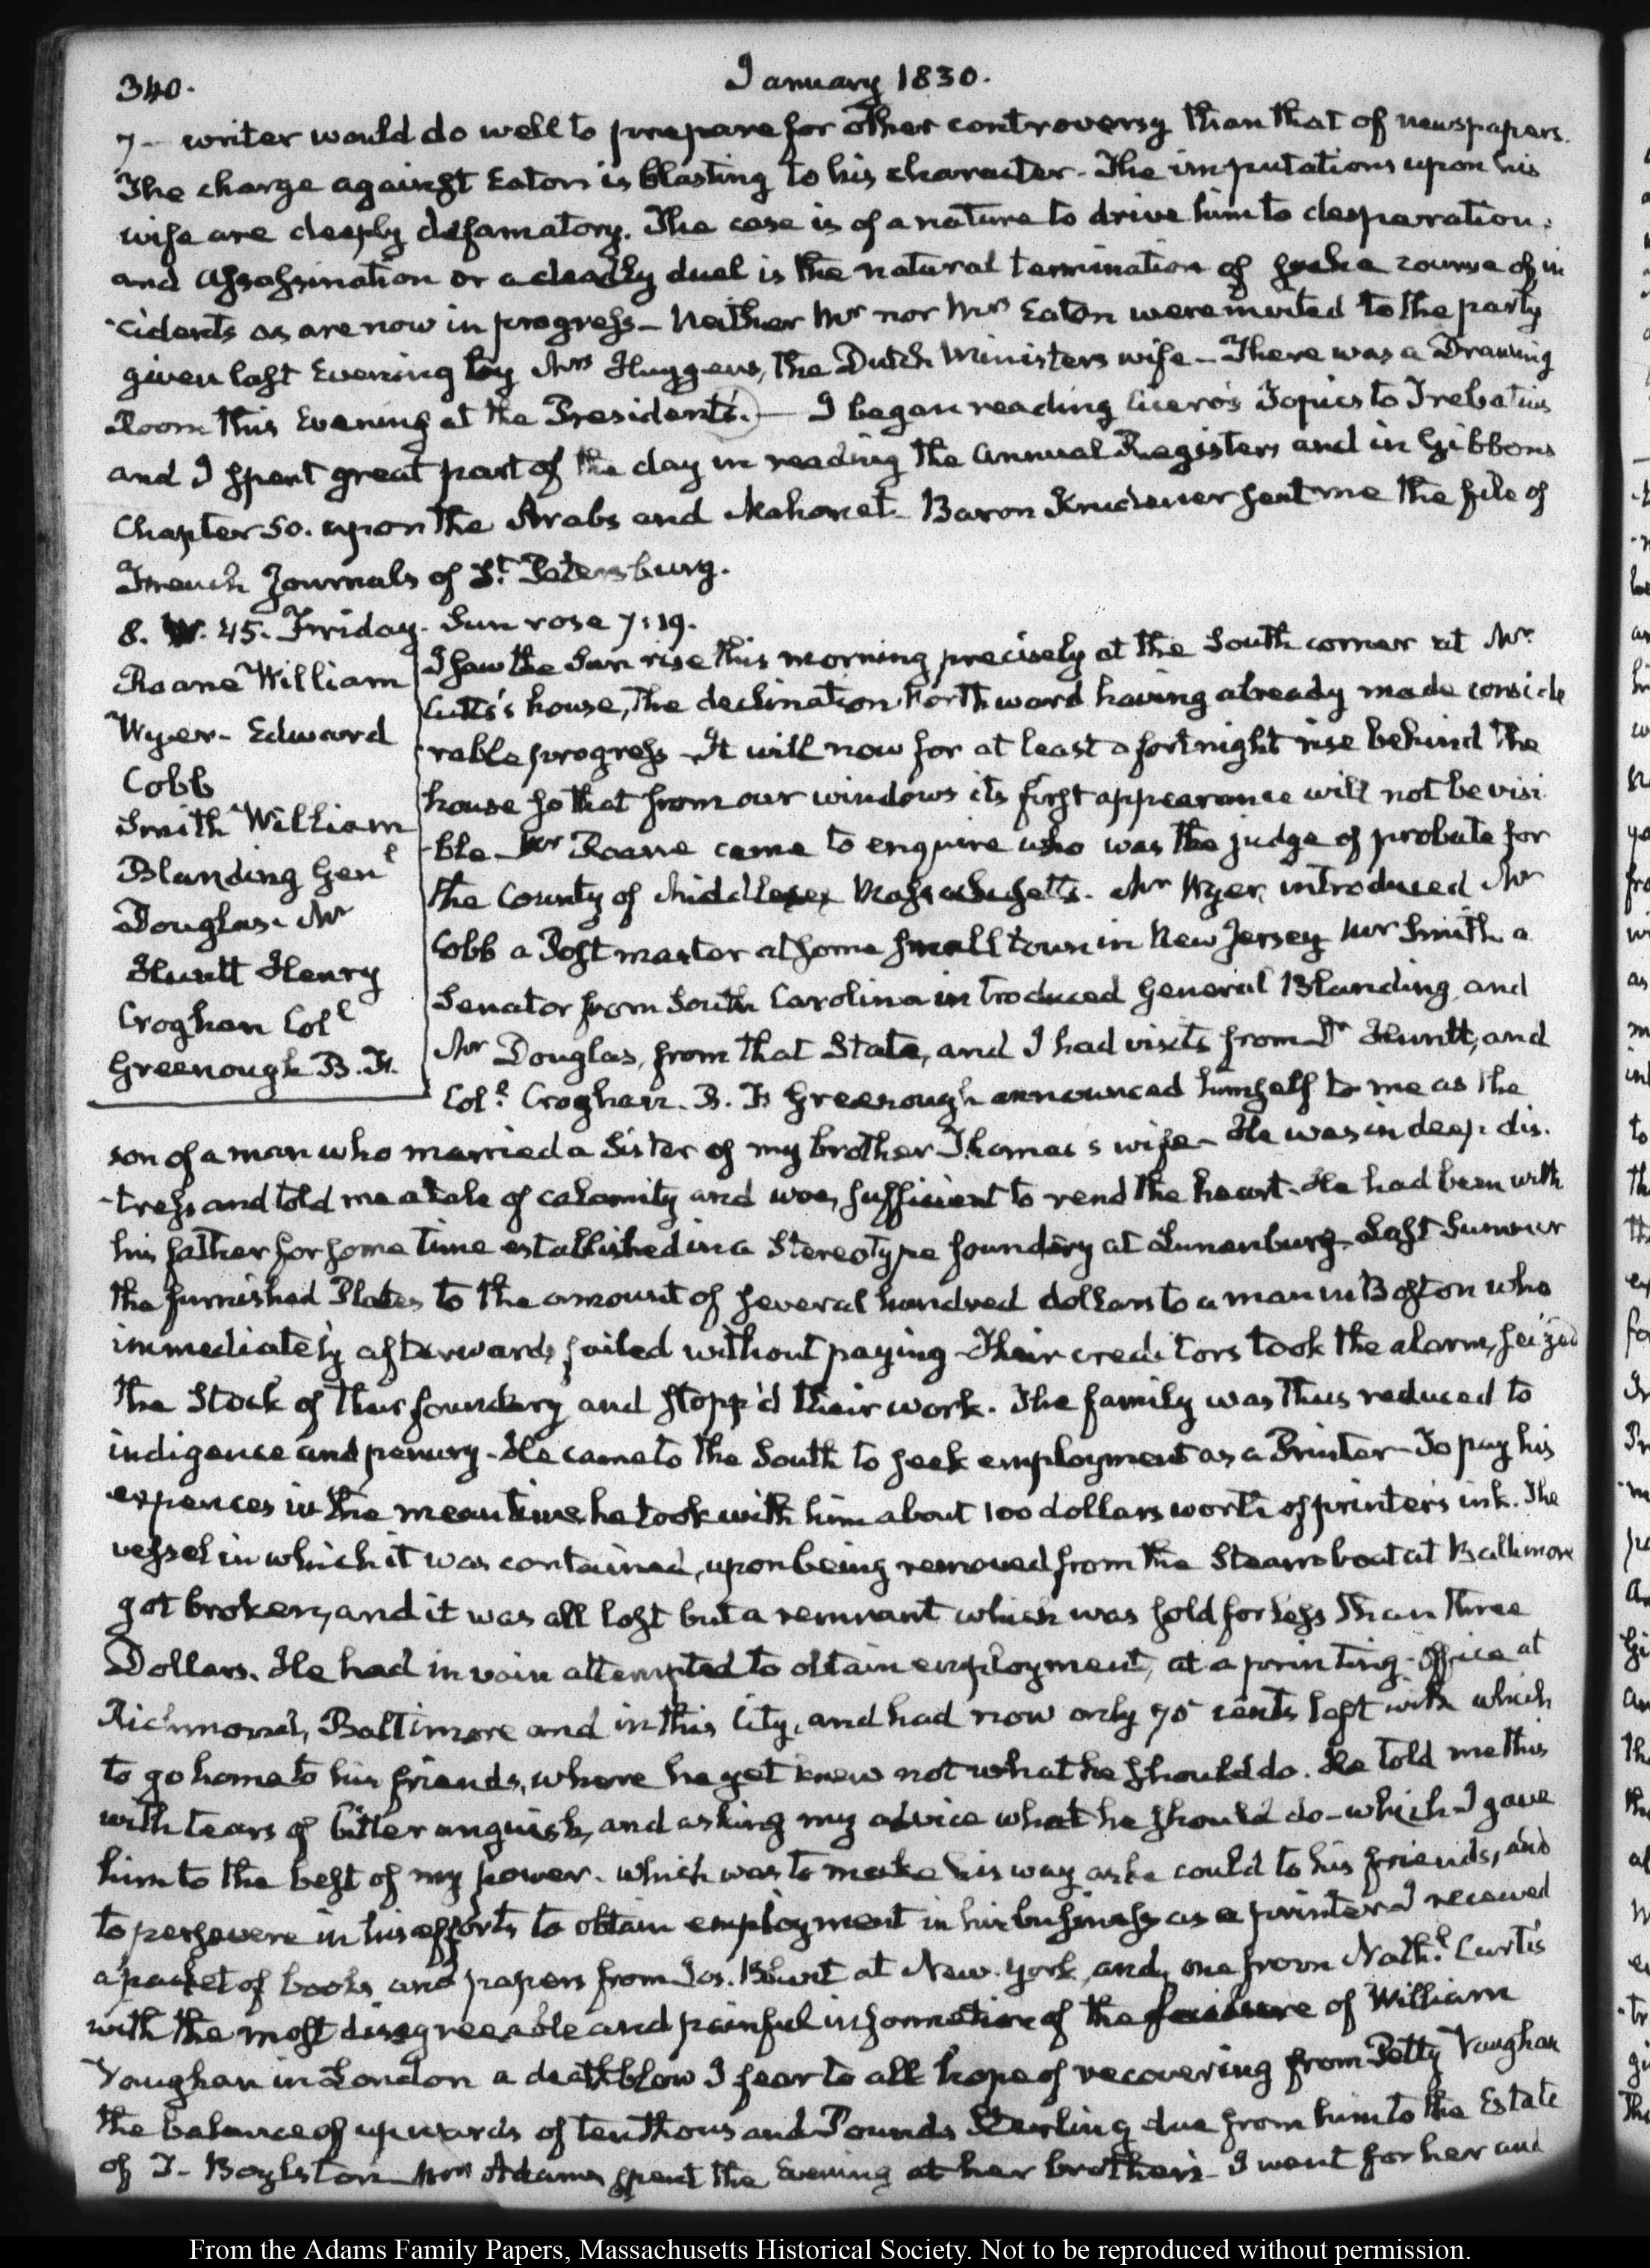 340.
January 1830.
7— writer would do well to prepare for other controversy than that of newspapers.
The charge against Eaton is blasting to his character. The imputations upon his
wife are deeply defamatory. The case is of a nature to drive him to desperation:
and assassination or a deadly duel is the natural termination of such a course of in
cidents as are now in progress— Neither Mr nor Mrs Eaton were invited to the party
given last Evening by Mrs Huygens, the Dutch Ministers wife— There was a Drawing
Room this Evening at the President's.— I began reading Cicero's Topics to Trebatius
and I spent great part of the day in reading the Annual Registers and in Gibbons
Chapter 50. upon the Arabs and Mahomet. Baron Krudener sent me the file of
French Journals of St. Petersburg.
8. 45. Friday. Sun rose 7:19.
Roane William
Wyer- Edward
Cobb
Smith William
Blanding Genl
Douglas. Mr
Huntt Henry
Croghan Coll
Greenough B. F.
I saw the Sun rise this morning precisely at the South corner at Mr
Cutts's house, the declination Northward having already made conside
rable progress— It will now for at least a fortnight rise behind the
house so that from our windows its first appearance will not be visi
-ble— Mr Roane came to enquire who was the judge of probate for
the County of Middlesex Massachusetts. Mr Wyer, introduced Mr
Cobb a Postmaster at some small town in New Jersey Mr Smith a
Senator from South Carolina introduced General Blanding, and
Mr Douglas, from that State, and I had visits from Dr Huntt, and
Coll. Croghan. B. F. Greenough announced himself to me as the
son of a man who married a Sister of my brother Thomas's wife— He was in deep dis.
-tress and told me a tale of calamity and woe, sufficient to rend the heart. He had been with
his father for some time established in a Stereotype foundery at Lunenburg— Last Summer
the furnished Plates to the amount of several hundred dollars to a man in Boston who
immediately afterwards failed without paying— Their creditors took the alarm, seized
the Stock of their foundery and stopp'd their work. The family was thus reduced to
indigence and penury— He came to the South to seek employment as a Printer— To pay his
expences in the mean time he took with him about 100 dollars worth of printer's ink. The
vessel in which it was contained, upon being removed from the Steamboat at Baltimore
got broken, and it was all lost but a remnant which was sold for less than three
Dollars. He had in vain attempted to obtain employment, at a printing-office at
Richmond, Baltimore and in this City, and had now only 75 cents left with which
to go home to his friends, where he yet knew not what he should do. He told me this
with tears of bitter anguish, and asking my advice what he should do— which I gave
him to the best of my power. which was to make his way as he could to his friends, and
to persevere in his efforts to obtain employment in his business as a printer I received
a packet of books and papers from Jos. Blunt at New. York, and one from Nathl. Curtis
with the most disagreeable and painful information of the failure of William
Vaughan in London a deathblow I fear to all hope of recovering from Petty Vaughan
the balance of upwards of ten thousand Pounds Sterling due from him to the Estate
of T- Boylston— Mrs Adams spent the Evening at her brother's— I went for her and
From the Adams Family Papers, Massachusetts Historical Society. Not to be reproduced without permission.